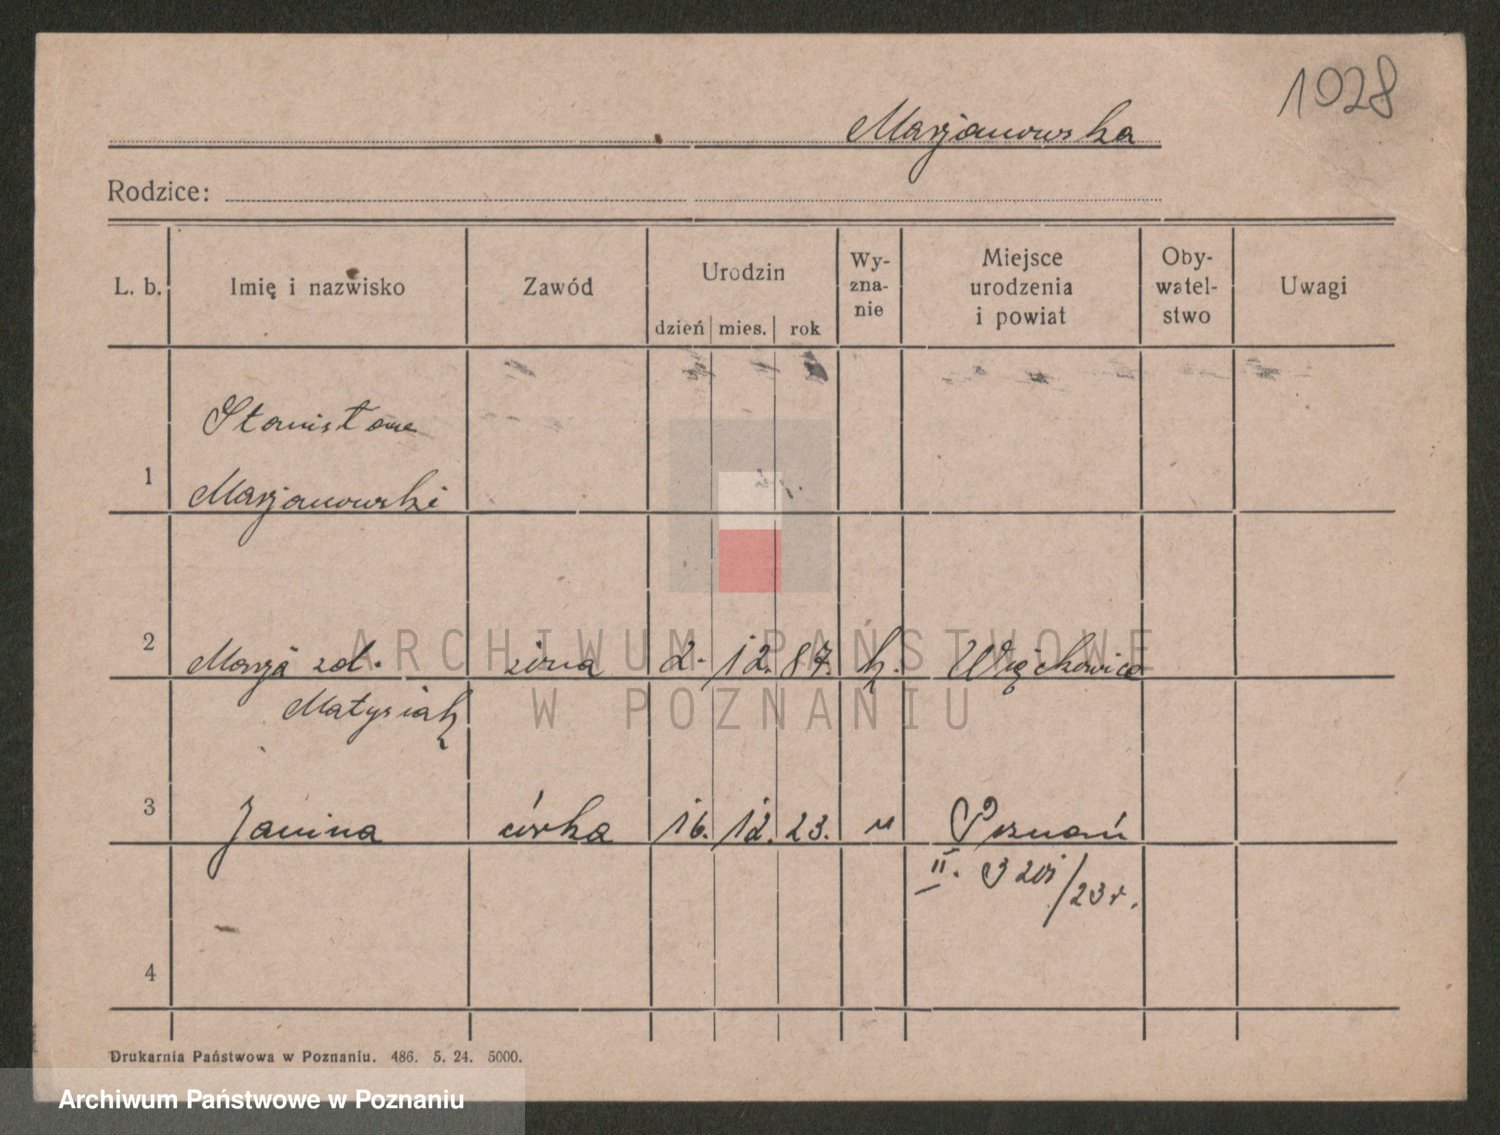 1028
Marjanowska
Rodzice:
L. b. Imię i nazwisko Zawód Urodzin dzień mies. rok Wy-zna-nie Miejsce urodzenia i powiat Oby-watel-stwo Uwagi
Stanisław
1 Marjanowski
2 Marja zd. żona 2. 12. 87. k. Więckowice
Matysiak
3 Janina córka 16. 12. 23. " Poznań
II. 3201/23 r.
4
Drukarnia Państwowa w Poznaniu. 486. 5. 24. 5000.
ARCHIWUM PAŃSTWOWE
W POZNANIU
Archiwum Państwowe w Poznaniu